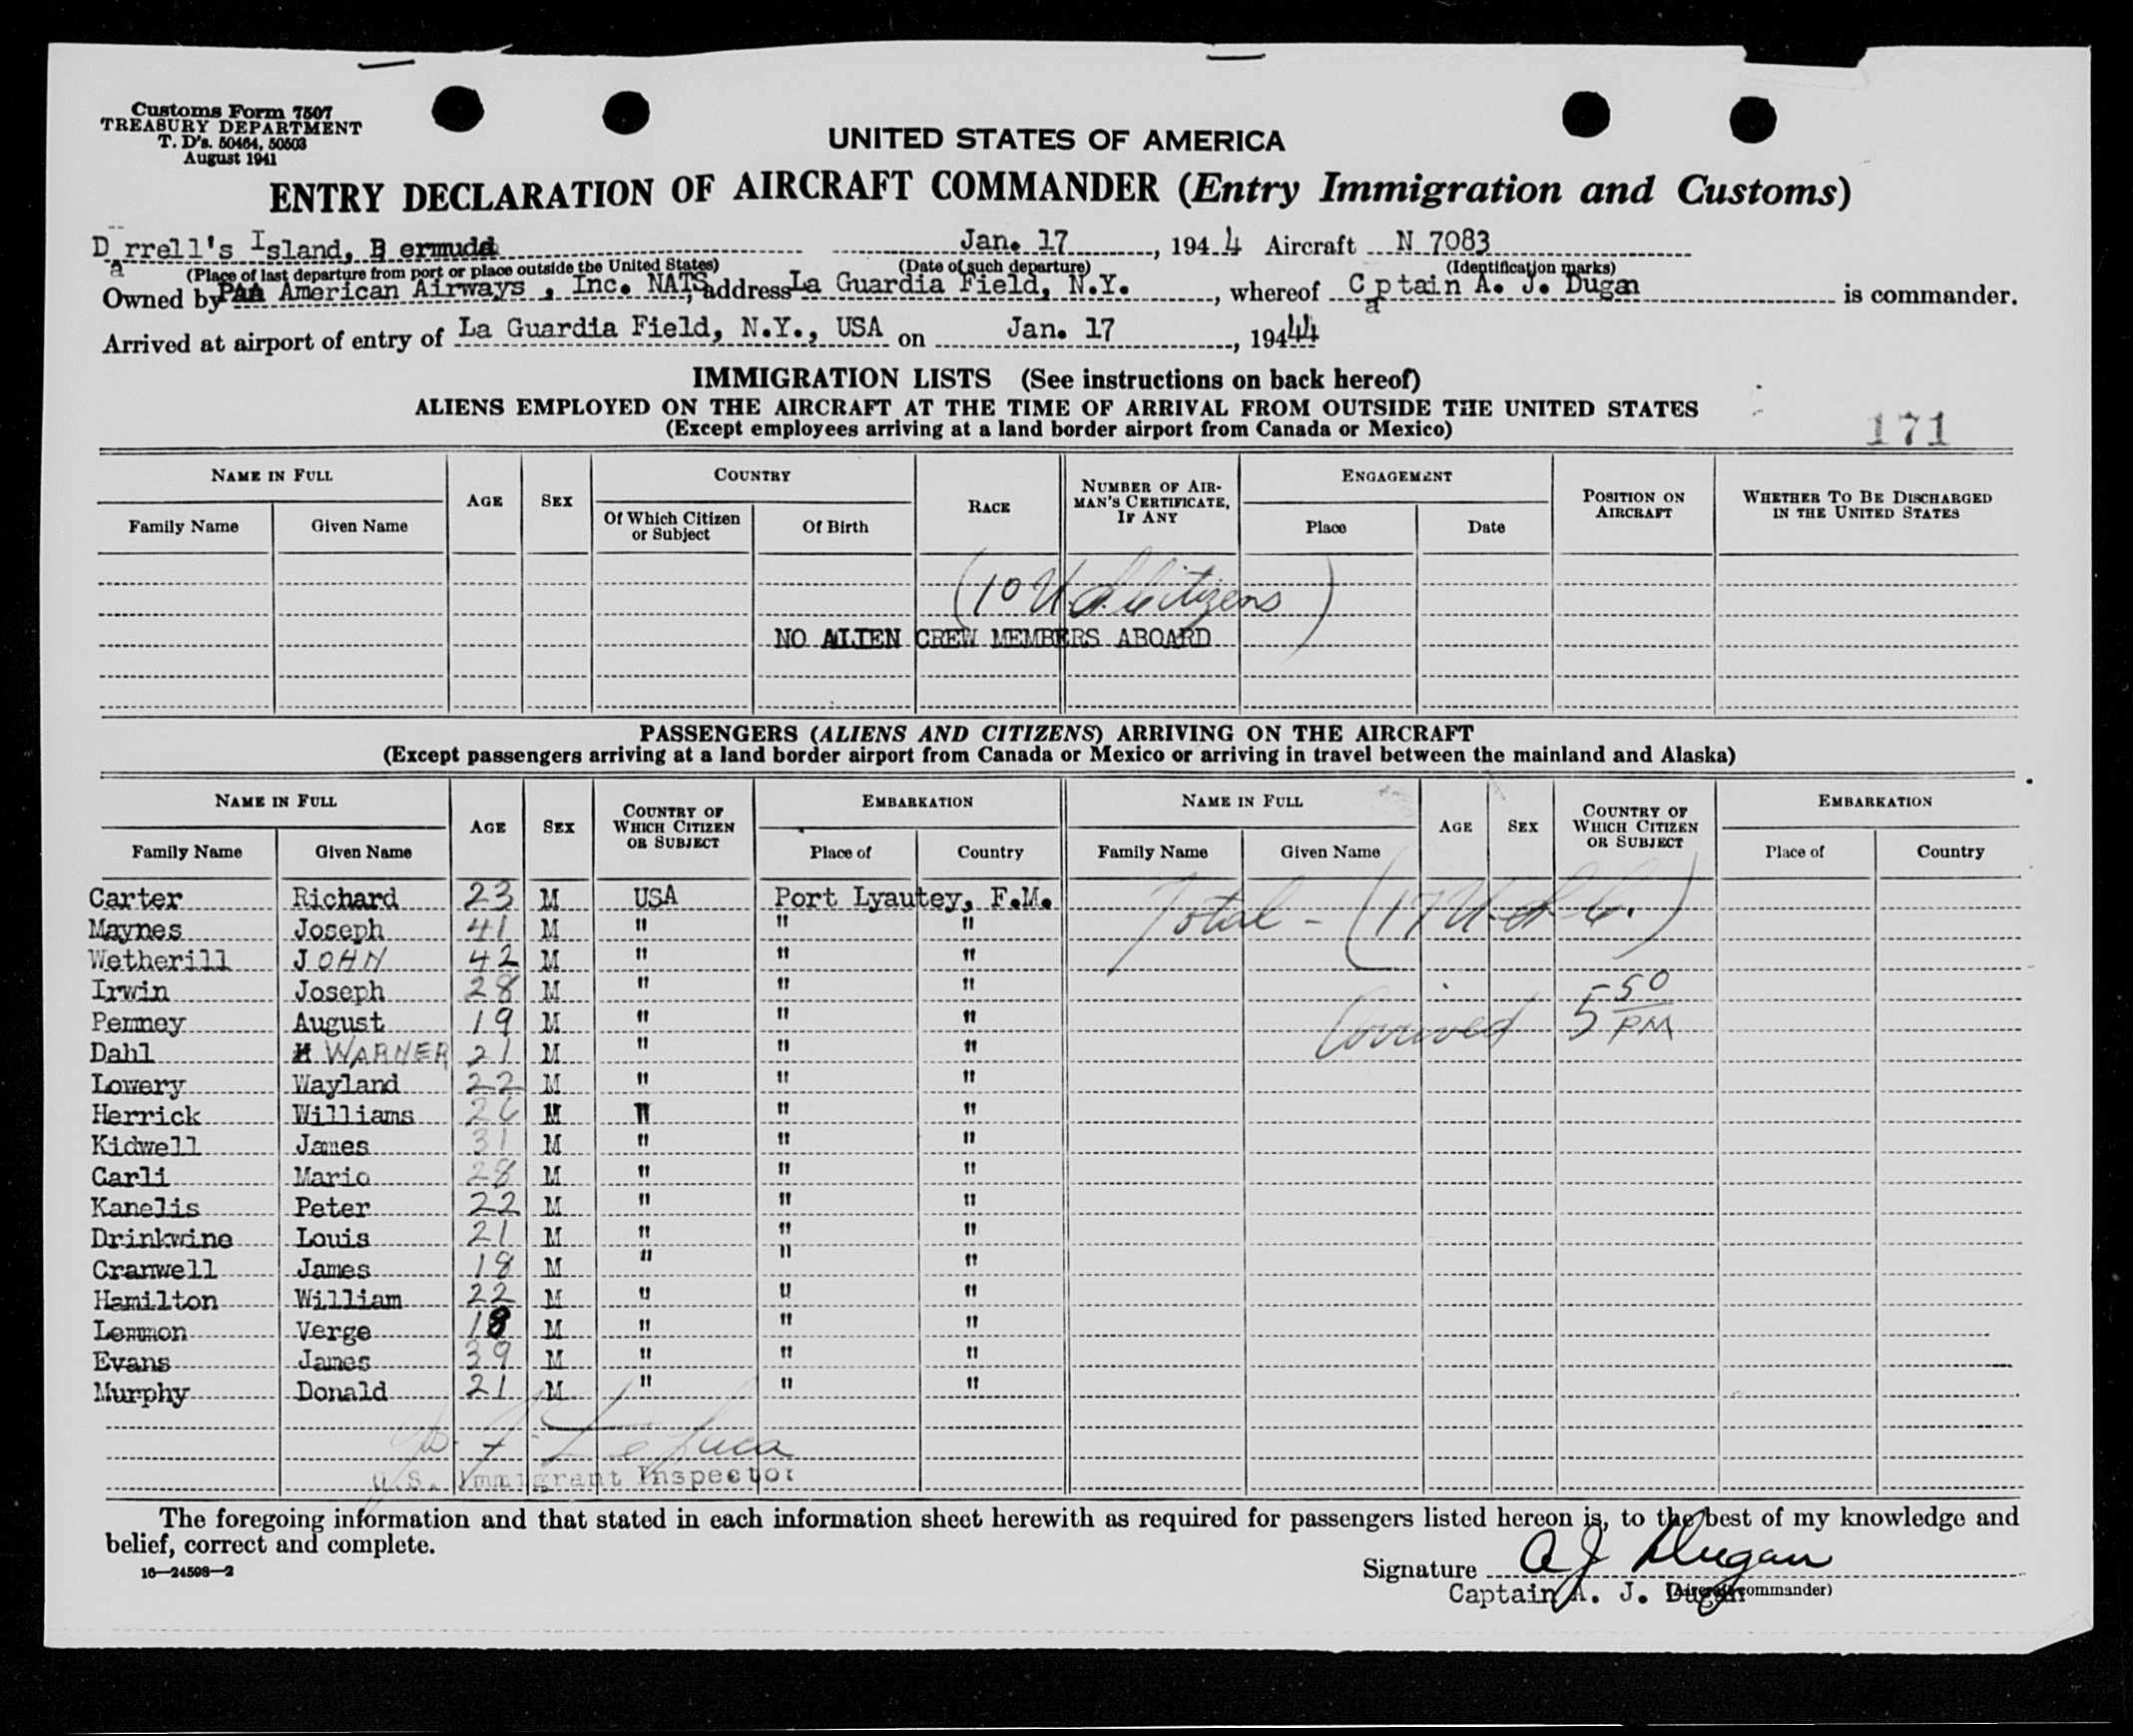 Customs Form 7507
TREASURY DEPARTMENT
T. D's. 50464, 50503
August 1941
UNITED STATES OF AMERICA
ENTRY DECLARATION OF AIRCRAFT COMMANDER (Entry Immigration and Customs)
Darrell's Island, Bermuda Jan. 17, 1944 Aircraft N 7083
(Place of last departure from port or place outside the United States) (Date of such departure) (Identification marks)
Owned by Pan American Airways, Inc. NATS, address La Guardia Field, N.Y., whereof Captain A. J. Dugan is commander.
Arrived at airport of entry of La Guardia Field, N.Y., USA on Jan. 17, 1944
IMMIGRATION LISTS (See instructions on back hereof)
ALIENS EMPLOYED ON THE AIRCRAFT AT THE TIME OF ARRIVAL FROM OUTSIDE THE UNITED STATES
(Except employees arriving at a land border airport from Canada or Mexico)
171
NAME IN FULL AGE SEX COUNTRY RACE NUMBER OF AIRMAN'S CERTIFICATE, IF ANY ENGAGEMENT POSITION ON AIRCRAFT WHETHER TO BE DISCHARGED IN THE UNITED STATES
Family Name Given Name Of Which Citizen or Subject Of Birth Place Date
(10 U.S. Citizens)
NO ALIEN CREW MEMBERS ABOARD
PASSENGERS (ALIENS AND CITIZENS) ARRIVING ON THE AIRCRAFT
(Except passengers arriving at a land border airport from Canada or Mexico or arriving in travel between the mainland and Alaska)
NAME IN FULL AGE SEX COUNTRY OF WHICH CITIZEN OR SUBJECT EMBARKATION NAME IN FULL AGE SEX COUNTRY OF WHICH CITIZEN OR SUBJECT EMBARKATION
Family Name Given Name Place of Country Family Name Given Name Place of Country
Carter Richard 23 M USA Port Lyautey, F.M. Total - (17 U.S.C.)
Maynes Joseph 41 M " " "
Wetherill JOHN 42 M " " "
Irwin Joseph 28 M " " "
Penney August 19 M " " " Arrived 5 50 PM
Dahl WARNER 21 M " " "
Lowery Wayland 22 M " " "
Herrick Williams 26 M " " "
Kidwell James 31 M " " "
Carli Mario 28 M " " "
Kanelis Peter 22 M " " "
Drinkwine Louis 21 M " " "
Cranwell James 18 M " " "
Hamilton William 22 M " " "
Lemmon Verge 18 M " " "
Evans James 39 M " " "
Murphy Donald 21 M " " "
U.S. Immigrant Inspector
The foregoing information and that stated in each information sheet herewith as required for passengers listed hereon is, to the best of my knowledge and
belief, correct and complete.
16—24598—2
Signature A J Dugan
Captain A. J. Dugan (Aircraft commander)